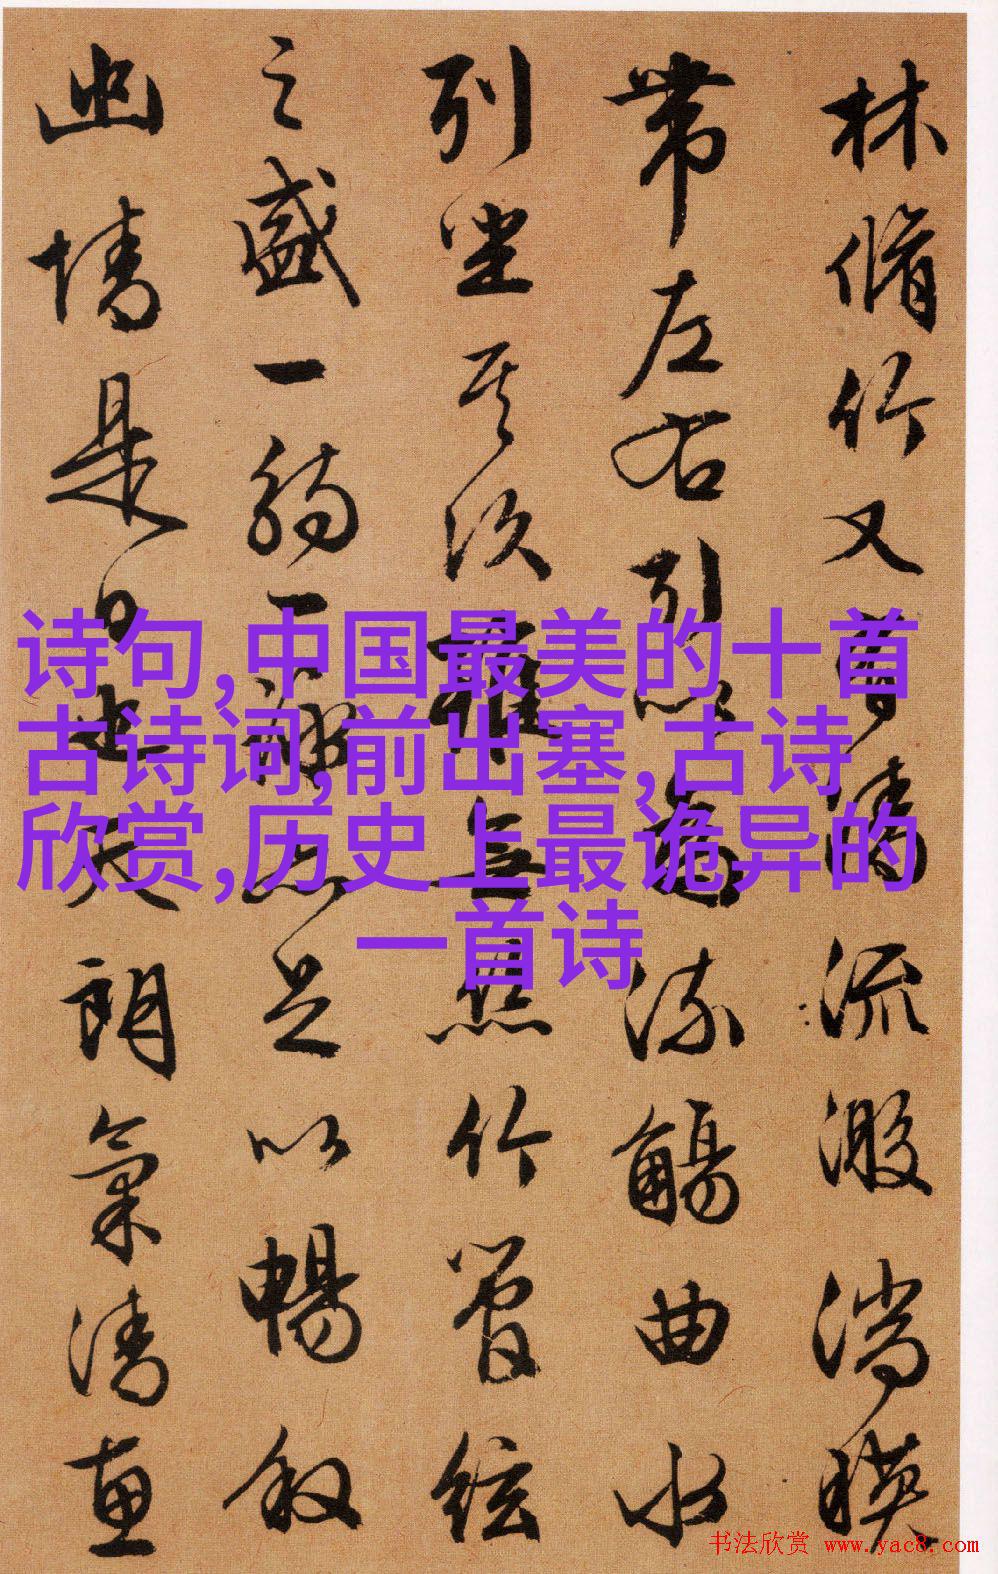 林脩竹又有清流激湍暎
带左右引以為流觴曲水
列坐其次雖無絲竹管絃
之盛一觴一詠亦足以暢叙
幽情是日也天朗氣清惠
诗句,中国最美的十首
古诗词,前出塞,古诗
欣赏,历史上最诡异的
一首诗
书法欣赏 www.yac8.com